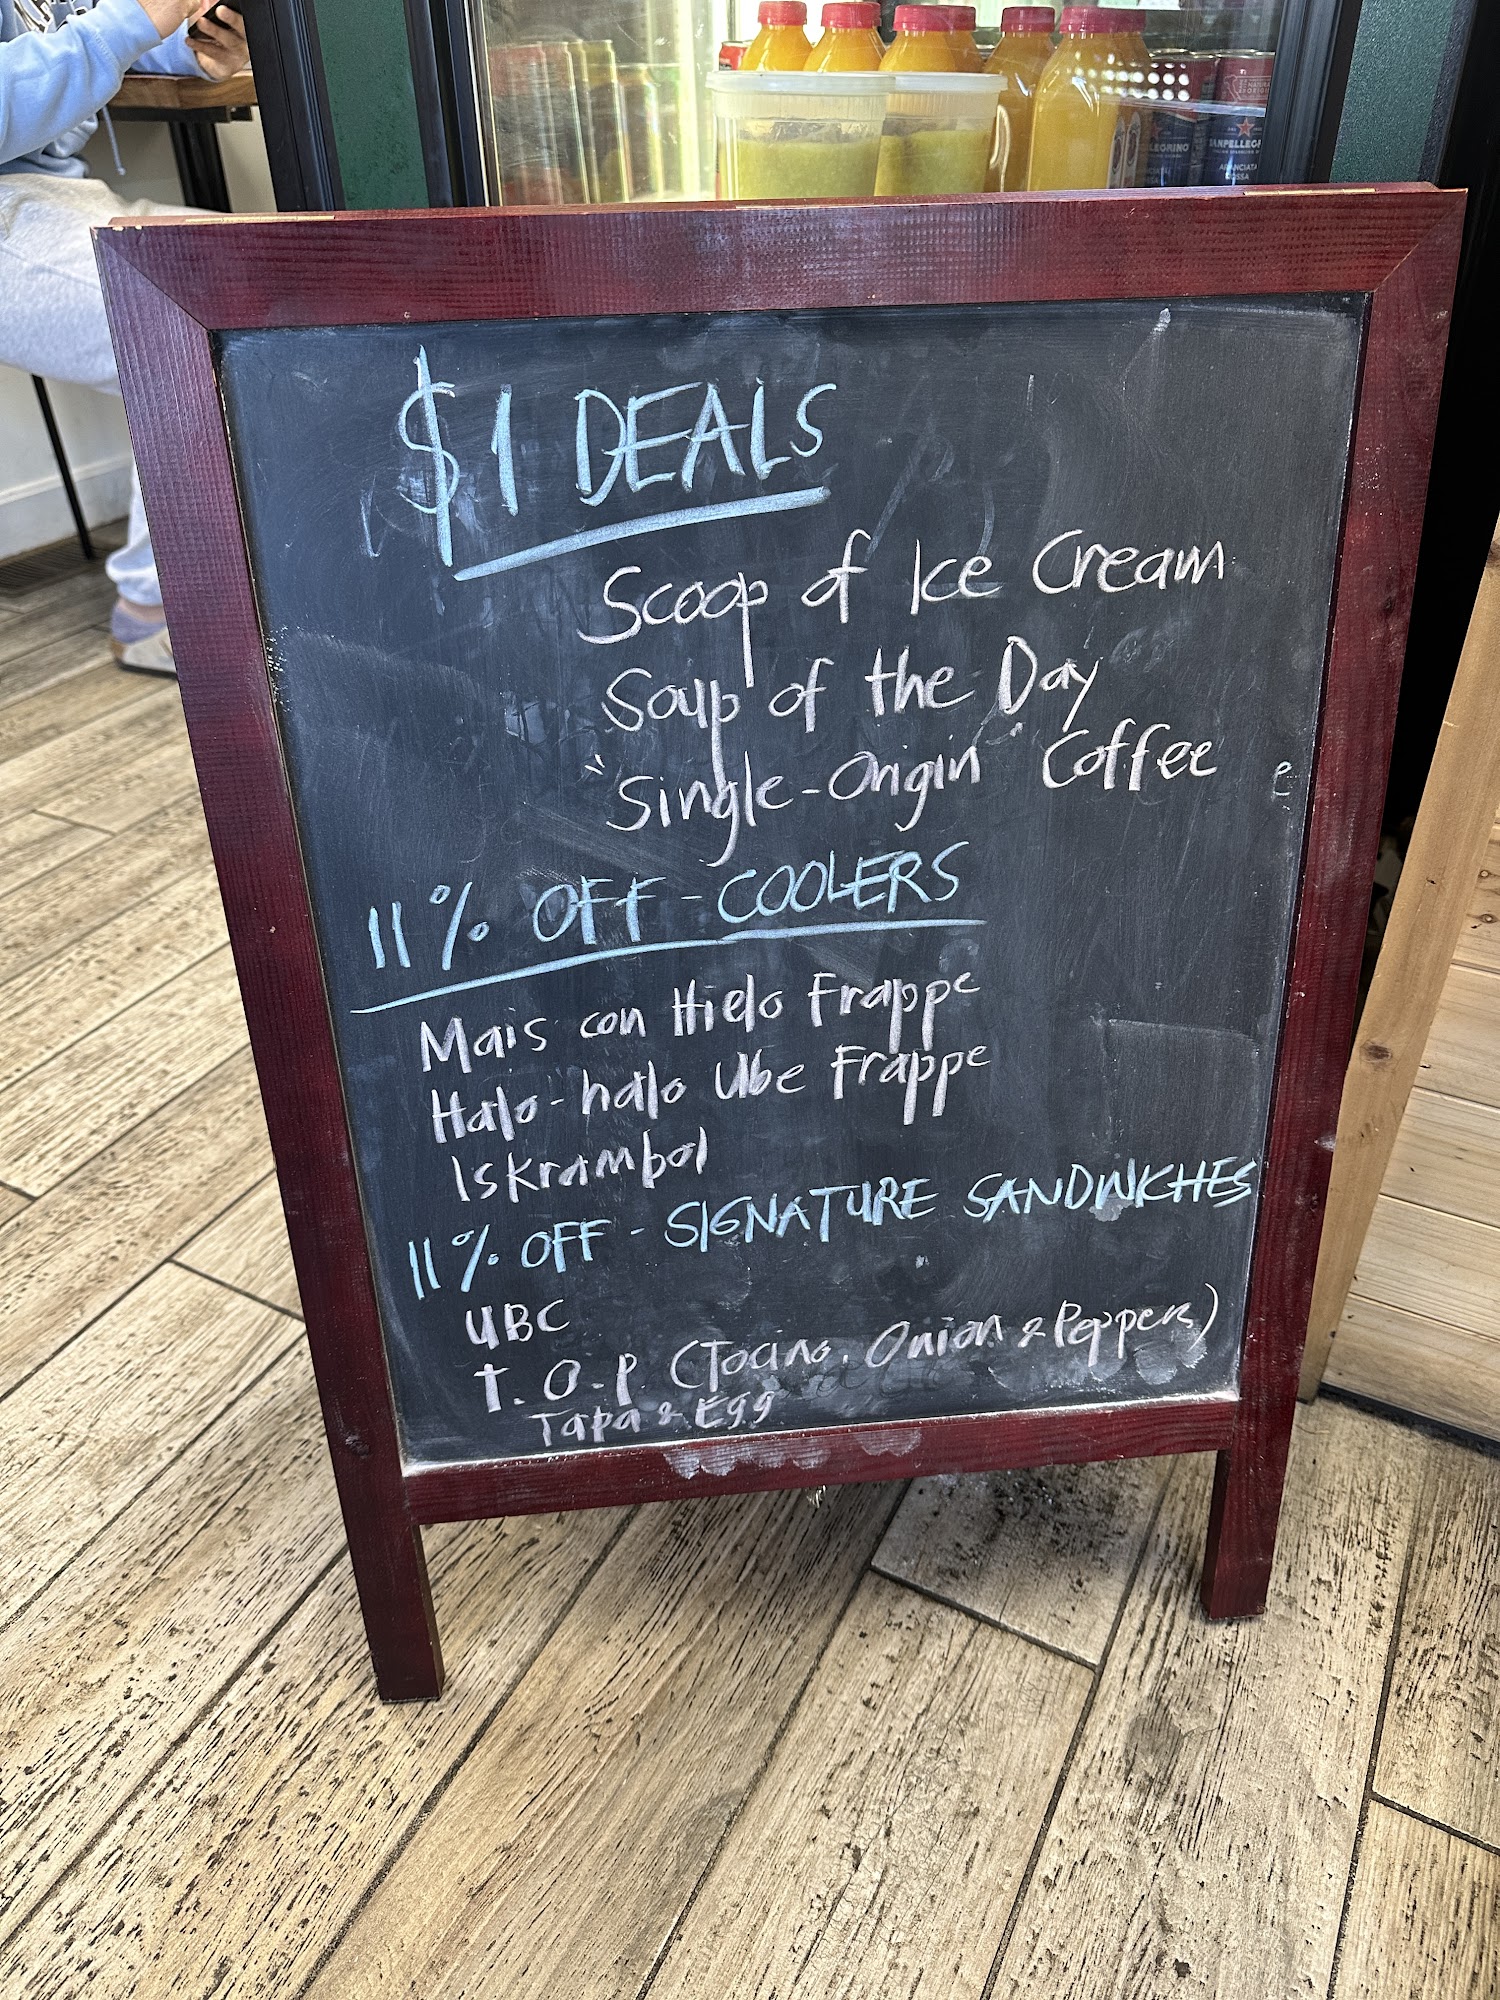 PELLEGRINO
SANPELLEGR
ARANCIATA
ROSSA
$1 DEALS
Scoop of Ice Cream
Soup of the Day
"Single-Origin" Coffee
e
11% OFF - COOLERS
Mais con Hielo Frappe
Halo-halo Ube Frappe
Iskrambol
11% OFF - SIGNATURE SANDWICHES
UBC
T.O.P. (Tocino, Onion & Peppers)
Tapa & Egg